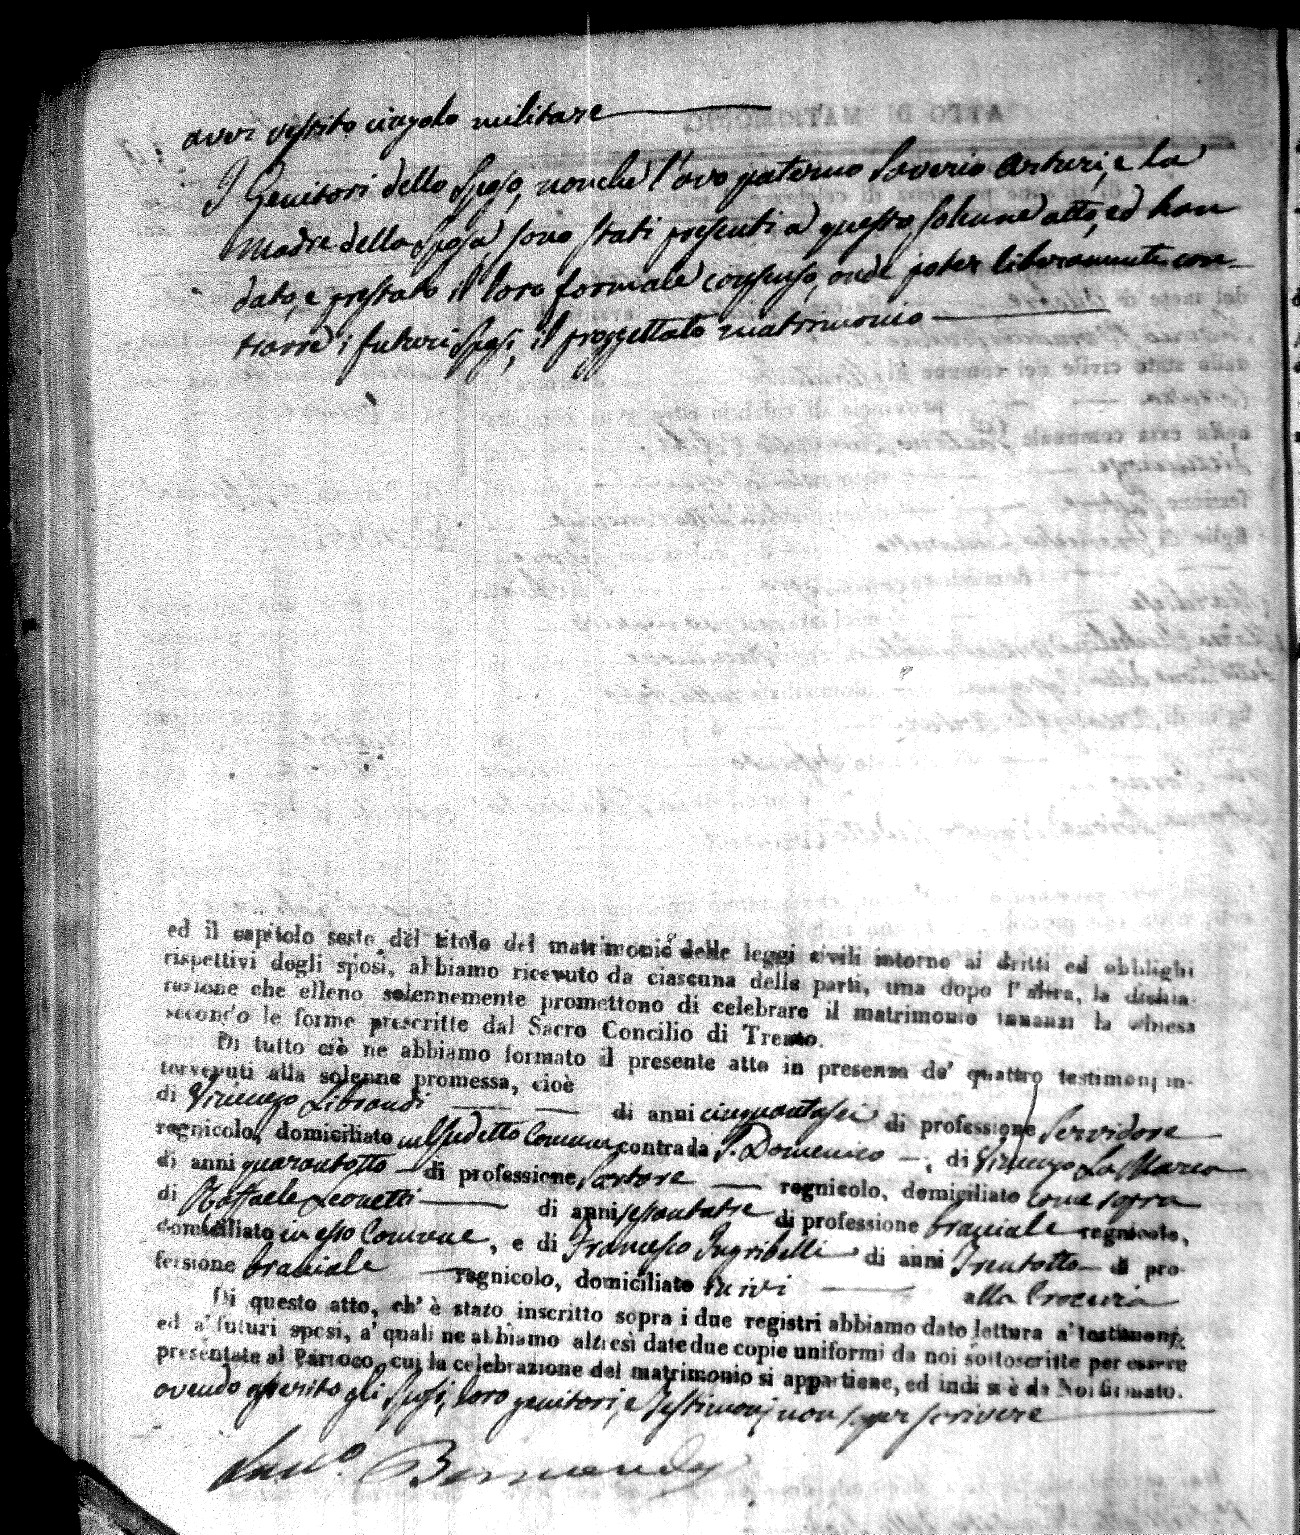 aver vestito cingolo militare
I Genitori dello Sposo, nonchè l'avo paterno Saverio Arturi, e la
Madre della Sposa sono stati presenti a questo solenne atto, ed han
dato, e prestato il loro formale consenso, onde poter liberamente con-
trarre i futuri Sposi, il proggettato matrimonio
ed il capitolo sesto del titolo del matrimonio delle leggi civili intorno ai dritti ed obblighi
rispettivi degli sposi, abbiamo ricevuto da ciascuna delle parti, una dopo l'altra, la dichia-
razione che elleno solennemente promettono di celebrare il matrimonio innanzi la chiesa
secondo le forme prescritte dal Sacro Concilio di Trento.
Di tutto ciò ne abbiamo formato il presente atto in presenza de' quattro testimonj in-
tervenuti alla solenne promessa, cioè
di Vincenzo Librandi di anni cinquantasei di professione Servidore
regnicolo, domiciliato in suddetto Comune contrada S. Domenico, di Vincenzo La Marca
di anni quarantotto di professione Sartore regnicolo, domiciliato come sopra
di Raffaele Leonetti di anni sessantatre di professione bracciale regnicolo,
domiciliato in esso Comune, e di Francesco di anni Trentotto di pro-
fessione bracciale regnicolo, domiciliato ivi alla
Di questo atto, ch'è stato inscritto sopra i due registri abbiamo dato lettura a' testimonj,
ed a' futuri sposi, a' quali ne abbiamo altresì date due copie uniformi da noi sottoscritte per essere
presentate al Parroco, cui la celebrazione del matrimonio si appartiene, ed indi si è da Noi firmato.
avendo asserito gli Sposi, loro genitori, e Testimonj non saper scrivere